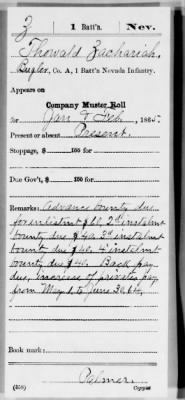 Z | 1 Batt'n. | Nev.
Thowald Zachariah
Bugler, Co. A, 1 Batt'n Nevada Infantry.
Appears on
Company Muster Roll
for Jan & Feb, 1865.
Present or absent Present.
Stoppage, $ 100 for
Due Gov't, $ 100 for
Remarks: Advance bounty due
for enlistmt $60, 2d instalmt
bounty due $40. 3d instalmt
bounty due $40. 4' instalmt
bounty due $40. Back pay
due, increase of privates pay
from May 1, to June 30, 64.
Book mark:
Palmer.
(358)
Copyist.